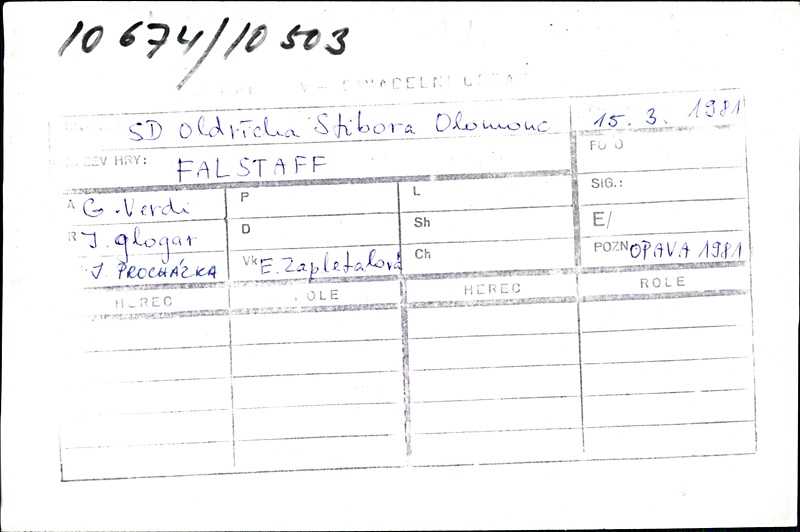 10 674/10 503
DIVADELNÍ ÚSTAV
SD Oldřicha Stibora Olomouc 15. 3. 1981
ZEV HRY: FALSTAFF FOTO
SIG.:
A G. Verdi P L
E/
R J. glogar D Sh
POZN OPAVA 1981
J. PROCHÁZKA Vk E. Zapletalová Ch
HEREC ROLE HEREC ROLE